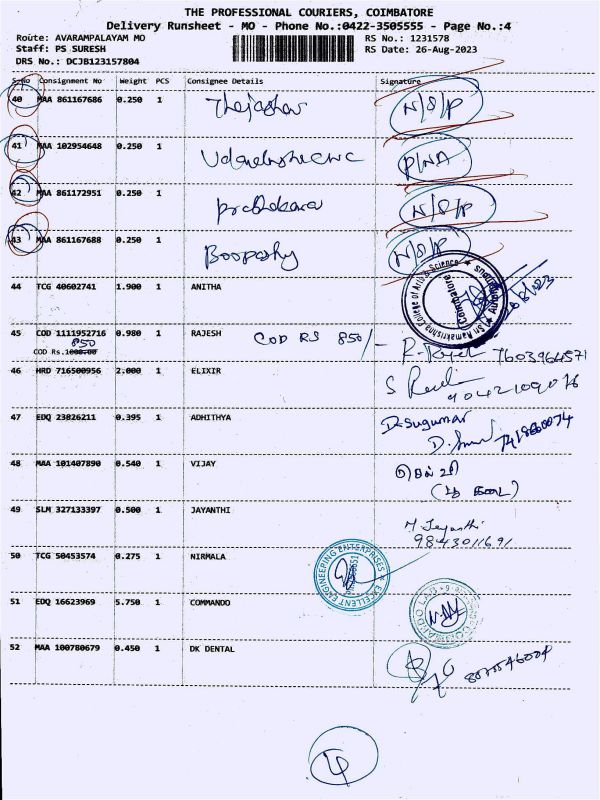 THE PROFESSIONAL COURIERS, COIMBATORE
Delivery Runsheet - MO - Phone No.:0422-3505555 - Page No.:4
Route: AVARAMPALAYAM MO RS No.: 1231578
Staff: PS SURESH RS Date: 26-Aug-2023
DRS No.: DCJB123157804
S.No Consignment No Weight PCS Consignee Details Signature
40 MAA 861167686 0.250 1 N/S/P
41 MAA 102954648 0.250 1 P/NA
42 MAA 861172951 0.250 1 Prabhakara N/S/P
43 MAA 861167688 0.250 1 Boopathy N/S/P
44 TCG 40602741 1.900 1 ANITHA
Sri Ramakrishna College of Arts & Science
Coimbatore
45 COD 1111952716 0.980 1 RAJESH COD RS 850/-
850
COD Rs.1000.00
46 HRD 716500956 2.000 1 ELIXIR
47 EDQ 23826211 0.395 1 ADHITHYA D.Sugumar
48 MAA 101407890 0.540 1 VIJAY
49 SLM 327133397 0.500 1 JAYANTHI M. Jeyanthi
9843011691
50 TCG 50453574 0.275 1 NIRMALA
EXCELLENT ENGINEERING ENTERPRISES
51 EDQ 16623969 5.750 1 COMMANDO
52 MAA 100780679 0.450 1 DK DENTAL